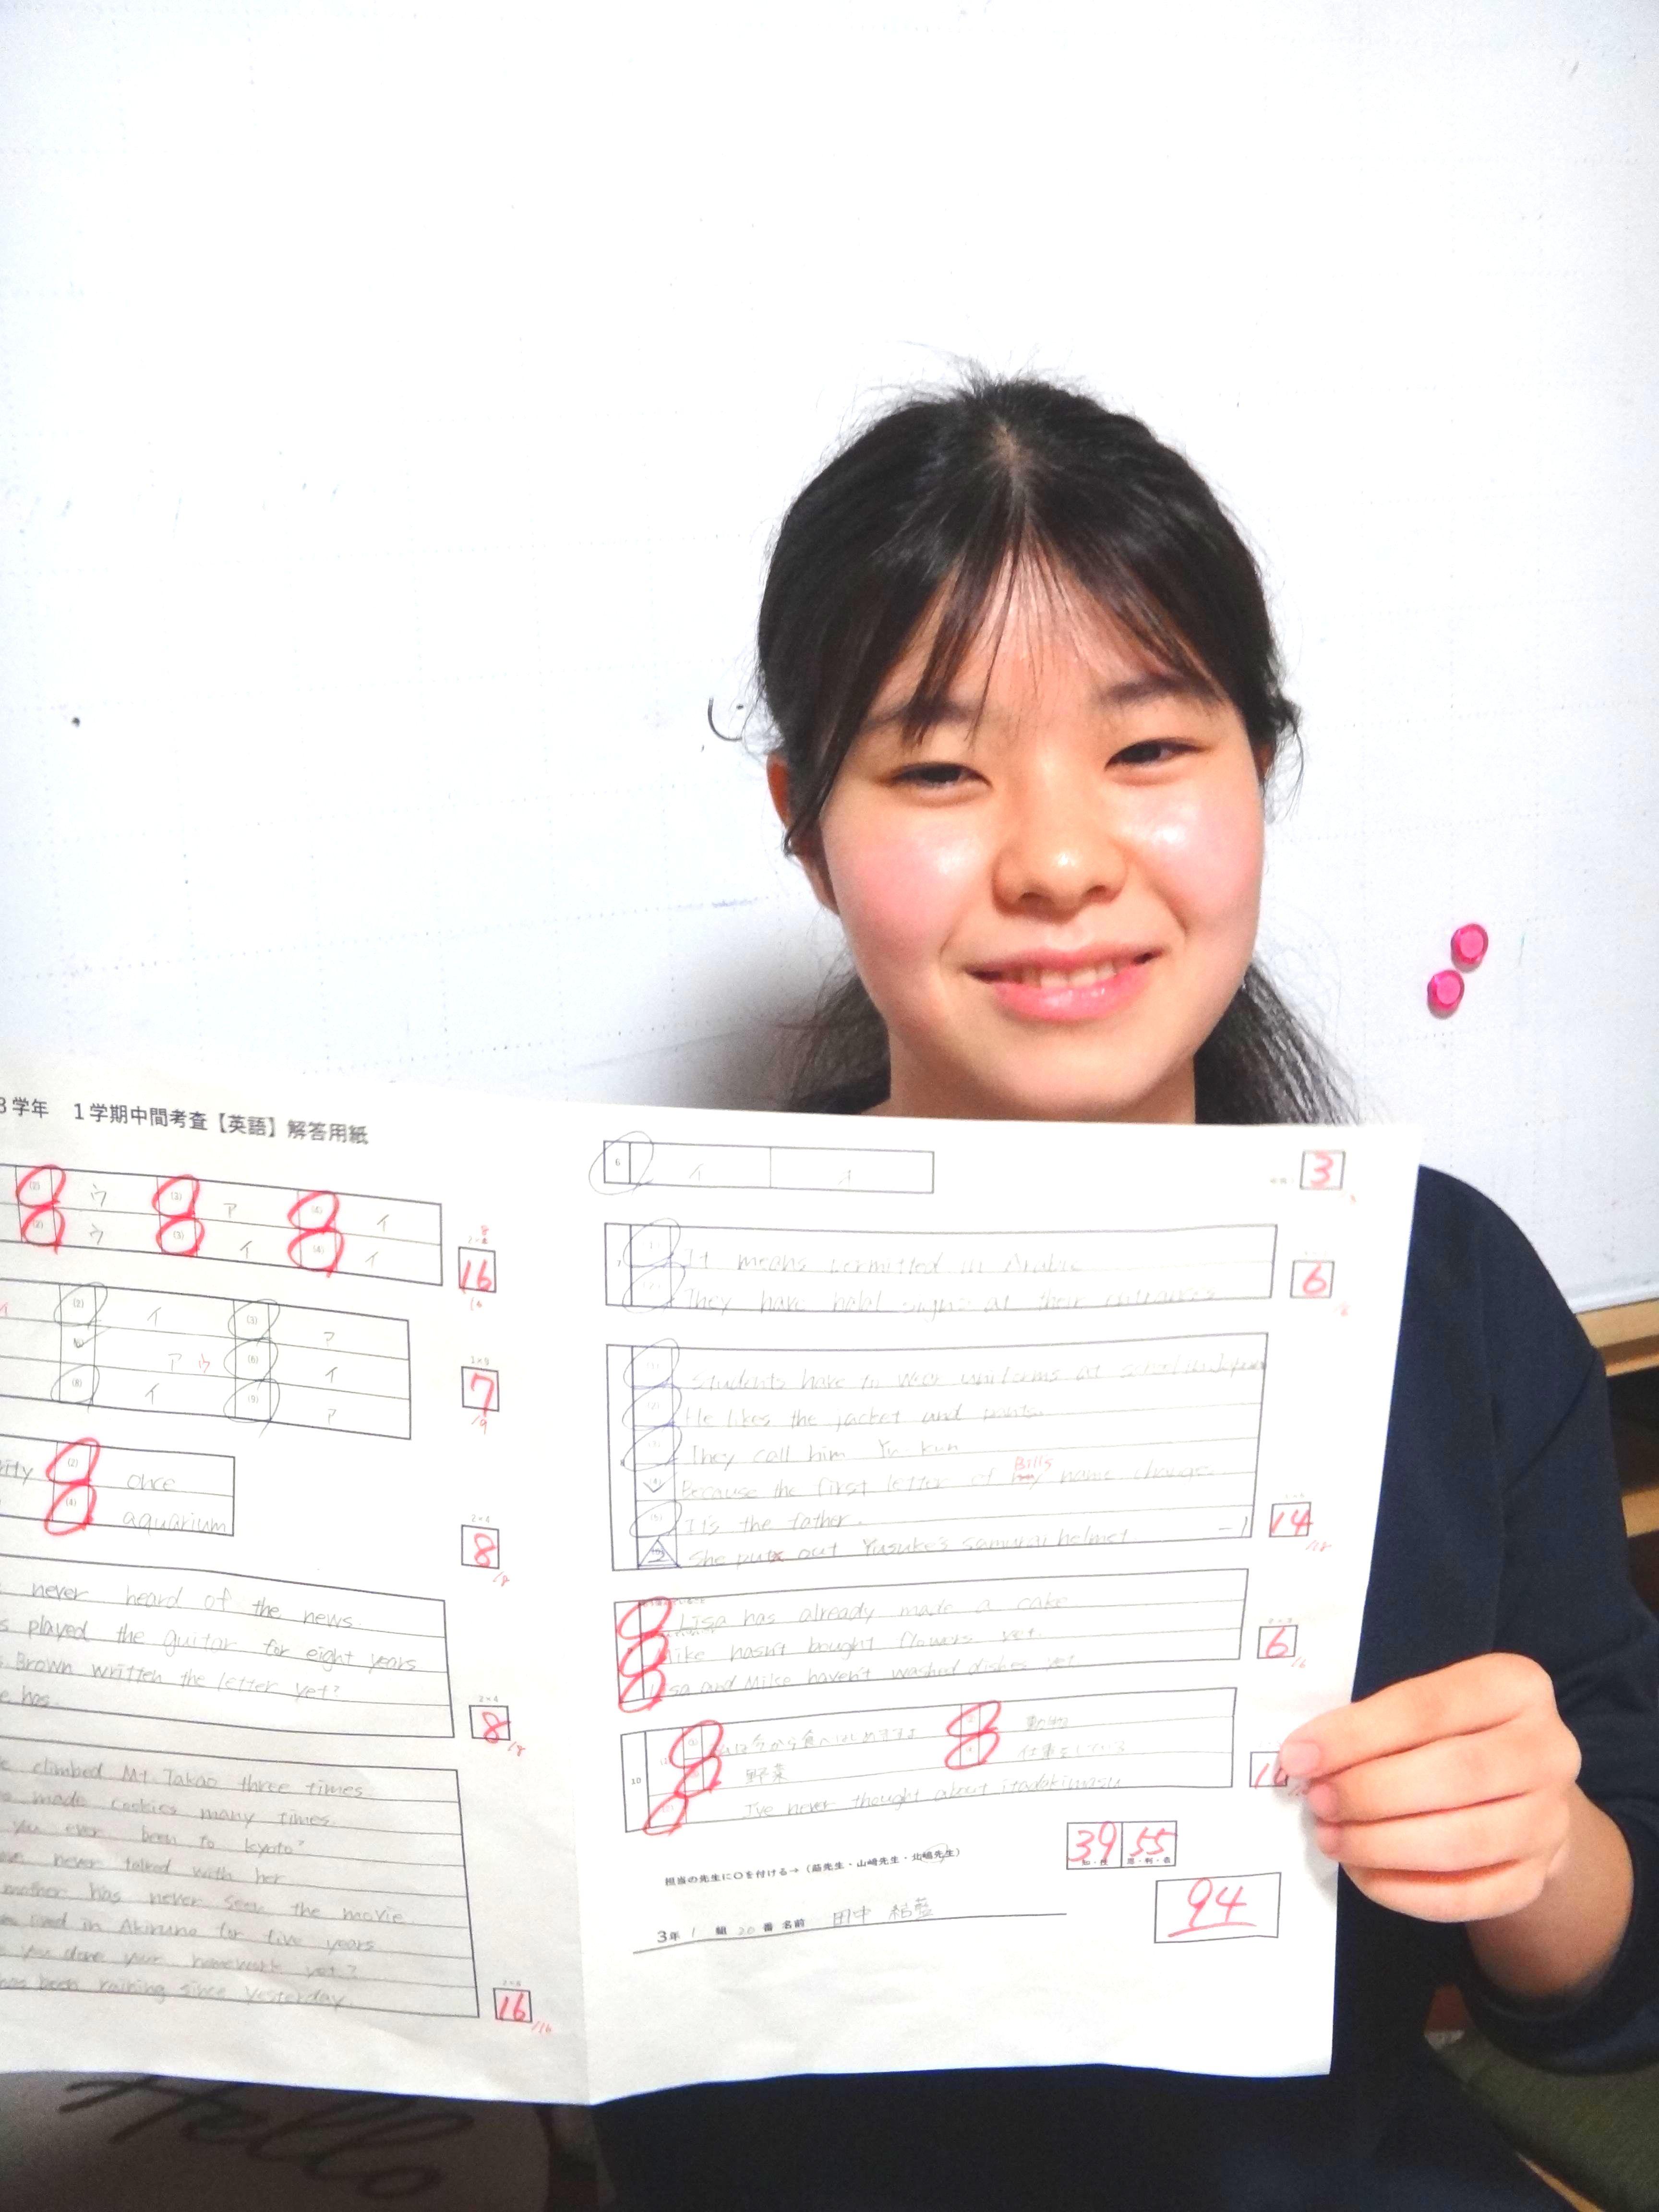 3学年 1学期中間考査【英語】解答用紙
(2) ウ (3) ア (4) イ
(2) ウ (3) イ (4) イ
8
2×8
16
/16
(2) イ (3) ア
ア ウ (6) イ
(8) イ (9) ア
1×9
7
/9
(2) once
(4) aquarium
2×4
8
/8
never heard of the news
played the guitar for eight years
Brown written the letter yet?
has
2×4
8
/8
climbed Mt. Takao three times
made cookies many times
you ever been to kyoto?
never talked with her
mother has never seen the movie
in Akiruno for five years
you done your homework yet?
has been raining since yesterday.
2×8
16
/16
6 イ オ
3
It means permitted in Arabic
They have halal signs at their entrances
6
Students have to wear uniforms at school in Japan
He likes the jacket and pants.
They call him Yu kun
Bills
Because the first letter of my name
It's the father.
She put out Yusuke's samurai helmet -1
14
Lisa has already made a cake
Mike hasn't bought flowers yet.
Lisa and Mike haven't washed dishes yet
6
/6
10
今から食べはじめますよ
動物
野菜
I've never thought about itadakimasu
担当の先生に○を付ける→（ 先生・山﨑先生・北嶋先生）
39 55
知・技 思・判・表
94
3年 1 組 20 番 名前 田中 結藍
Hello